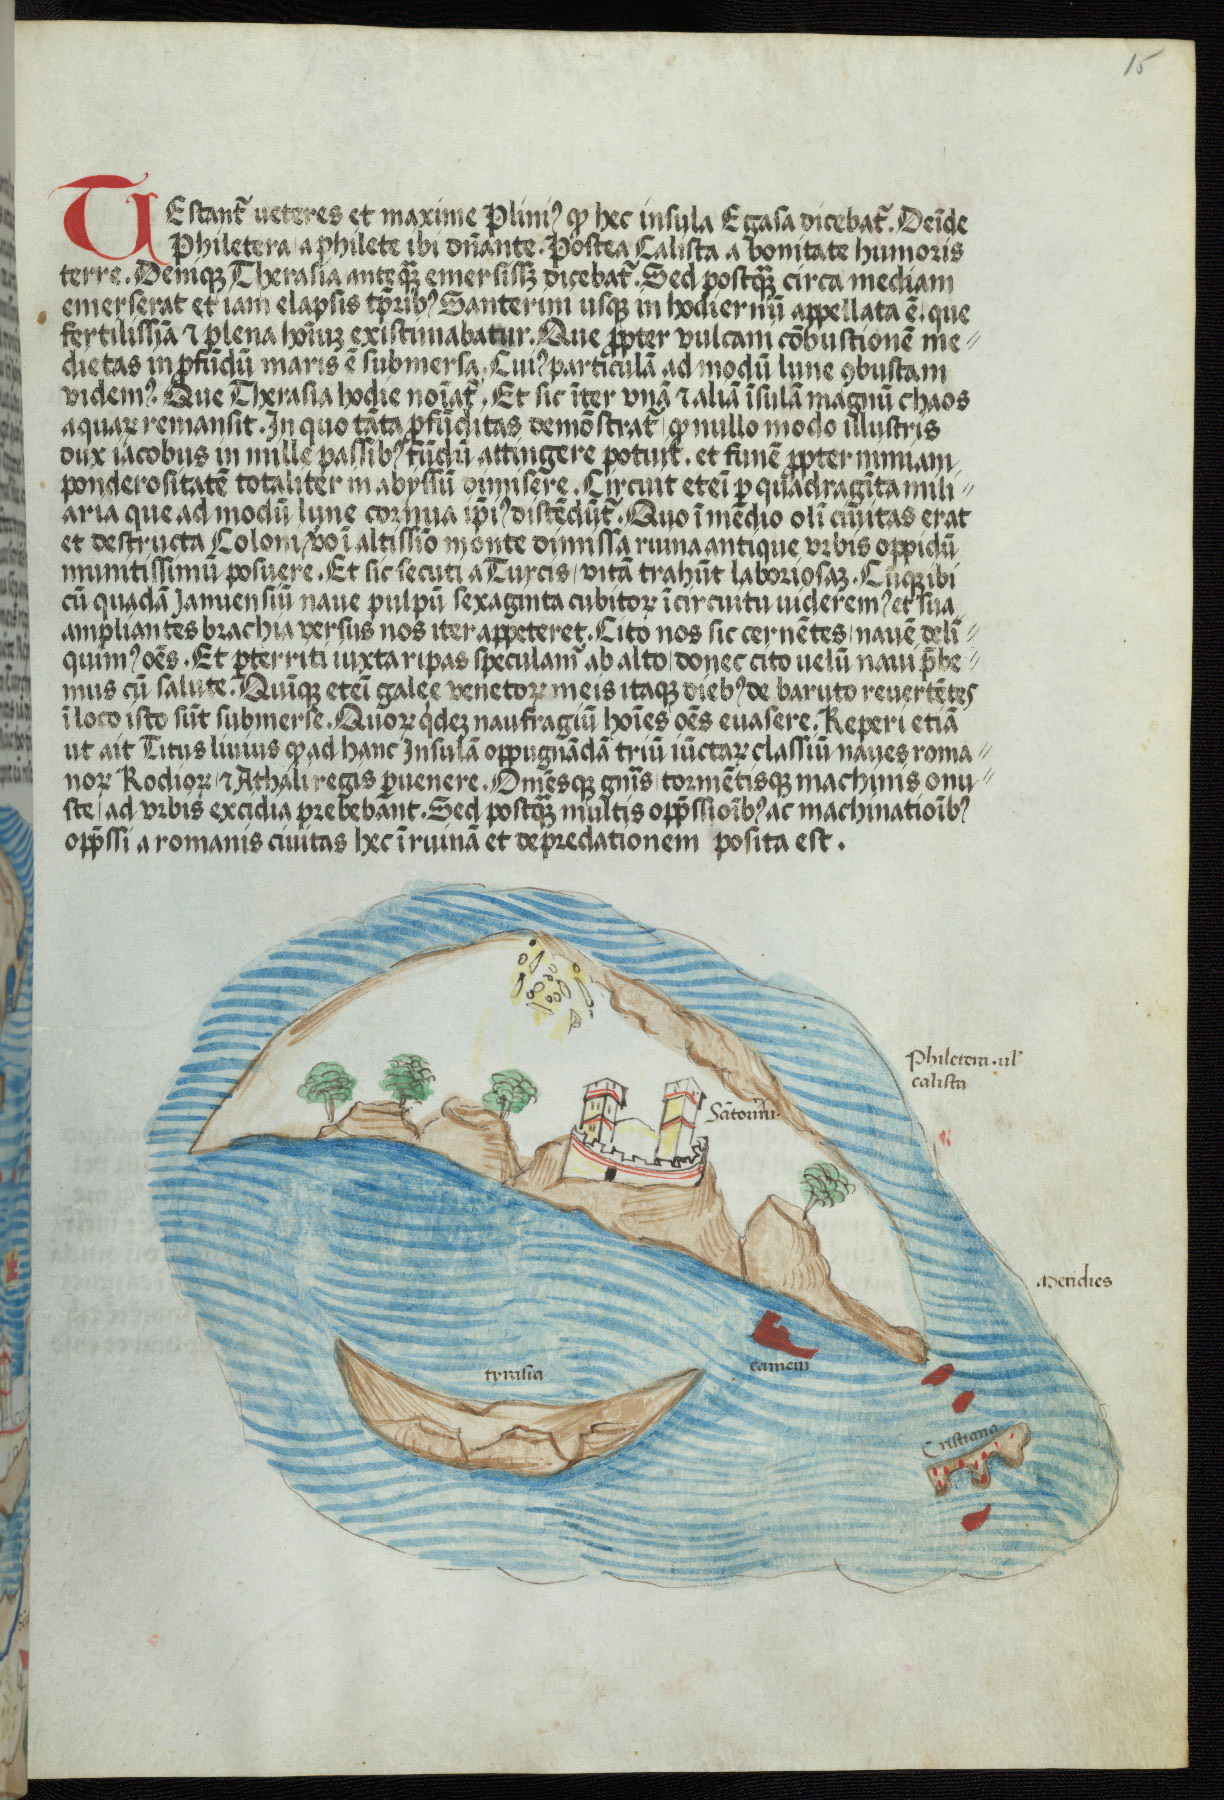 15
TEstant̃ ueteres et maxime Plini⁹ ꝙ hec insula Egasa dicebat̃. Deĩde
Philetera / a philete ibi dñante. Postea Calista a bonitate humoris
terre. Demiqꝫ Therasia anteqꝫ̃ emersissꝫ dicebat̃. Sed postqꝫ̃ circa mediam
emerserat et iam elapsis tp̃rib⁹ Santerini usqꝫ in hodiernũ appellata ẽ. que
fertilissĩa ⁊ plena hoĩuꝫ existimabatur. Que ꝓpter vulcani cõbustionẽ me〃
dietas in ꝓfũdũ maris ẽ submersa. Cui⁹ particulã ad modũ lune ꝯbustam
videm⁹. Que Therasia hodie noĩat̃. Et sic ĩter vnã ⁊ aliã ĩsulã magnũ chaos
aquaꝝ remansit. In quo tãta ꝓfũditas demõstrat̃ ꝙ nullo modo illustris
dux iacobus in mille passib⁹ fũdũ attingere potuit. et funẽ ꝓpter nimiam
ponderositatẽ totaliter in abyssũ dimisere. Circuit eteĩ ꝑ quadragĩta mili〃
aria que ad modũ lune cornua ip̃i⁹ distẽdũt̃. Quo ĩ mẽdio olĩ ciuitas erat
et destructa Coloni / v̊o ĩ altissĩo monte dimissa ruina antique vrbis oppidũ
munitissimũ posuere. Et sic secuti a Turcis / vitã trahũt laboriosaꝫ. Cũqꝫ ibi
cũ quadã Januensiũ naue pulpũ sexaginta cubitoꝝ ĩ circuitu viderem⁹ et sua
ampliantes brachia versus nos iter appeteret. Cito nos sic cernẽtes / nauẽ delĩ〃
quim⁹ oẽs. Et ꝑterriti iuxta ripas speculam̃ ab alto / donec cito uelũ naui p̃be〃
mus cũ salute. Quĩqꝫ eteĩ galee venetoꝝ meis itaqꝫ dieb⁹ de baruto revertẽtes
ĩ loco isto sũt submerse. Quoꝝ q̇deꝫ naufragiũ hoĩes oẽs euasere. Reperi etiã
ut ait Titus liuius ꝙ ad hanc Insulã oppugnãdã triũ iũctaꝝ classiũ naues roma〃
noꝝ Rodioꝝ / ⁊ Athali regis ꝑuenere. Om̃esqꝫ gñis / tormẽtisqꝫ machinis onu〃
ste / ad vrbis excidia prebebant. Sed postqꝫ̃ multis opp̃ssioĩb⁹ ac machinatioĩb⁹
opp̃ssi a romanis ciuitas hec ĩ ruinã et depredationem posita est.
Philetera . ul̃
calista
Sãtorini
Meridies
tyrasia
camein
Cristiana